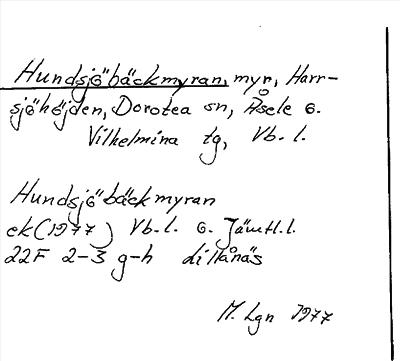 Hundsjöbäckmyran, myr, Harr-
sjöhöjden, Dorotea sn, Åsele o.
Vilhelmina tg, Vb. l.
Hundsjöbäckmyran
ek (1977) Vb. l. o. Jämtl. l.
22F 2-3 g-h Lillånäs
M. Lgn 1977